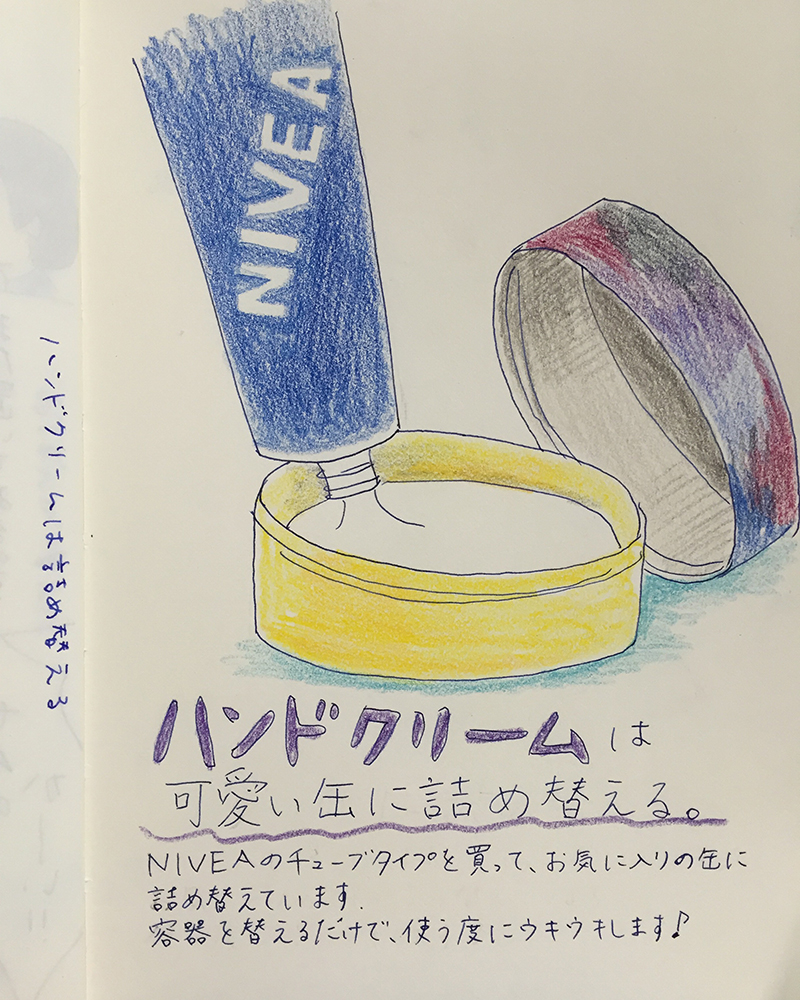 NIVEA
ハンドクリームは詰め替える
ハンドクリームは
可愛い缶に詰め替える。
NIVEAのチューブタイプを買って、お気に入りの缶に
詰め替えています.
容器を替えるだけで、使う度にウキウキします♪